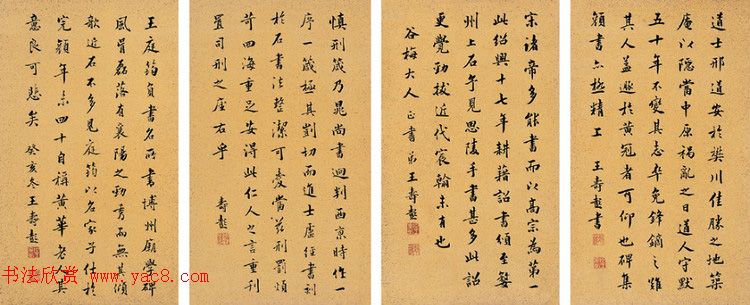 道士邢道安於樊川佳勝之地築
庵以隱當中原禍亂之日道人守默
五十年不變其志卒免鋒鏑之難
其人蓋遯於黃冠者可仰也碑集
顏書亦極精工 王壽彭書
宋諸帝多能書而以高宗為第一
此紹興十七年耕藉詔書頒至婺
州上石予見思陵手書甚多此詔
更覺勁拔近代宸翰未有也
谷梅大人正書弟王壽彭
慎刑箴乃晁尚書迥判西京時作一
序一箴極其剴切而道士虛經書刊
於石書法整潔可愛當茲刑罰煩
苛四海重足安得此仁人之言重刊
置司刑之座右乎 壽彭
王庭筠負書名所書博州廟學碑
風骨磊落有襄陽之勁秀而無其傾
欹迹石不多見庭筠以名家子仕於
完顏年未四十自稱黃華老人其
意良可悲矣 癸亥冬王壽彭
书法欣赏.com